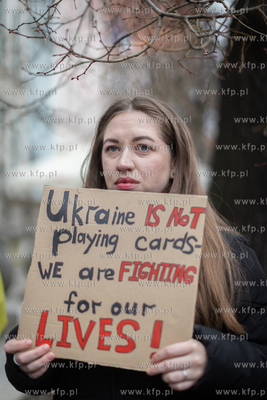 www.kfp.pl
Ukraine IS NOT
playing cards-
WE are FIGHTING
for our
LIVES!